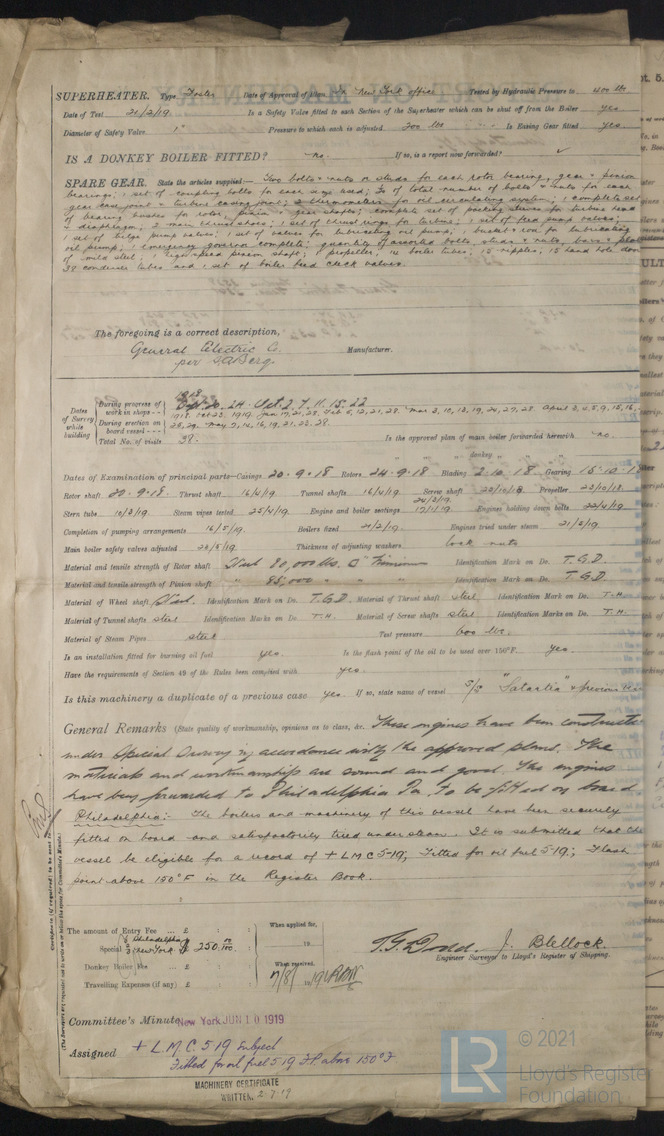 SUPERHEATER. Type Foster Date of Approval of Plan In New York office Tested by Hydraulic Pressure to 400 lbs
Date of Test 21/2/19 Is a Safety Valve fitted to each Section of the Superheater which can be shut off from the Boiler yes
Diameter of Safety Valve 1" Pressure to which each is adjusted 200 lbs Is Easing Gear fitted yes
IS A DONKEY BOILER FITTED? no. If so, is a report now forwarded?
SPARE GEAR. State the articles supplied:— Two bolts & nuts or studs for each rotor bearing, gear & pinion
bearings; 1 set of coupling bolts for each size used; of total number of bolts & nuts for each
gear case joint & turbine casing joint; 2 thermometers for oil circulating system; 1 complete set
of bearing bushes for rotor, pinion & gear shafts; complete set of packing strips for turbine head
& diaphragm; 2 main thrust shoes; 1 set of thrust rings for turbine; 1 set of feed pump valves;
1 set of bilge pump valves; 1 set of valves for lubricating oil pump; 1 bucket & rod for lubricating
oil pump; 1 emergency governor complete; quantity of assorted bolts, studs & nuts, bars &
of mild steel; 1 high speed pinion shaft; 1 propeller; boiler tubes; 15 nipples; 15 hand hole
38 condenser tubes and 1 set of boiler feed check valves.
The foregoing is a correct description,
General Electric Co. Manufacturer.
per
Dates of Survey while building
During progress of work in shops - - 1918 Sept. 20. 24. Oct. 2. 7. 11. 15. 22
During erection on board vessel - - -
Total No. of visits 39. Is the approved plan of main boiler forwarded herewith no.
" " " donkey "
Dates of Examination of principal parts—Casings 20.9.18 Rotors 24.9.18 Blading 2.10.18 Gearing 15.10.1
Rotor shaft 20.9.18 Thrust shaft 16/4/19 Tunnel shafts 16/4/19 Screw shaft 23/10/18 Propeller 23/10/18
Stern tube 10/3/19 Steam pipes tested 25/4/19 Engine and boiler seatings 17/11/19 Engines holding down bolts 22/4/19
Completion of pumping arrangements 16/5/19 Boilers fixed 21/2/19 Engines tried under steam 21/5/19
Main boiler safety valves adjusted 26/5/19 Thickness of adjusting washers lock nuts
Material and tensile strength of Rotor shaft Steel 80,000 lbs. □" Minimum Identification Mark on Do. T.G.D.
Material and tensile strength of Pinion shaft " 85,000 " " " Identification Mark on Do. T.G.D
Material of Wheel shaft Steel. Identification Mark on Do. T.G.D. Material of Thrust shaft steel Identification Mark on Do. T.H.
Material of Tunnel shafts steel Identification Marks on Do. T.H. Material of Screw shafts steel Identification Marks on Do. T.H.
Material of Steam Pipes steel Test pressure 600 lbs.
Is an installation fitted for burning oil fuel yes. Is the flash point of the oil to be used over 150°F. yes.
Have the requirements of Section 49 of the Rules been complied with yes.
Is this machinery a duplicate of a previous case yes. If so, state name of vessel S/S "Satartia" & previous
General Remarks (State quality of workmanship, opinions as to class, &c. These engines have been constructed
under Special Survey in accordance with the approved plans. The
materials and workmanship are sound and good. The engines
have been forwarded to Philadelphia Pa. to be fitted on board.
Philadelphia:- The boilers and machinery of this vessel have been securely
fitted on board and satisfactorily tried under steam. It is submitted that the
vessel be eligible for a record of + L.M.C 5-19, Fitted for oil fuel 5-19; Flash
point above 150°F in the Register Book.
The amount of Entry Fee ... £ : : When applied for,
Special 1/3 Philadelphia 2/3 New York $ 250.00/100 19
Donkey Boiler Fee ... £ : : When received,
Travelling Expenses (if any) £ : : 7/8/ 19
T.G. Dodd. J. Blellock.
Engineer Surveyor to Lloyd's Register of Shipping.
Committee's Minute New York JUN 10 1919
Assigned + L.M.C. 5.19 Subject
Fitted for oil fuel 5.19 F.P. above 150°F
MACHINERY CERTIFICATE
WRITTEN. 2.7.19
© 2021
Lloyd's Register
Foundation